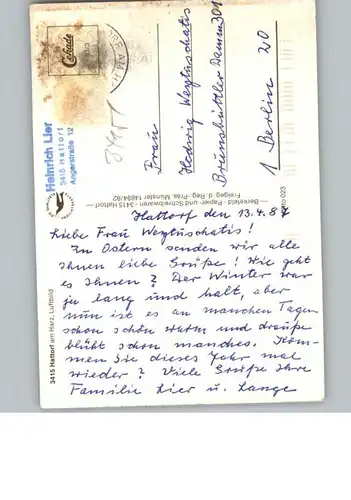 Cebade
Heinrich Lier
3415 Hattorf
Angerstraße 12
Frau
Hedwig Weytuschatis
Brunsbüttler Damm 301
1 Berlin 20
Berkefeld - Papier- und Schreibwaren - 3415 Hattorf
Freigeg. d. Reg.-Präs. Münster 14694/82
3415 Hattorf am Harz, Luftbild
Hattorf den 13.4.87
Liebe Frau Weytuschatis!
Zu Ostern senden wir alle
Ihnen liebe Grüße! Wie geht
es Ihnen? Der Winter war
ja lang und kalt, aber
nun ist es an manchen Tagen
schon schön warm und draußen
blüht schon manches. Kom-
men Sie dieses Jahr mal
wieder? Viele Grüße Ihre
Familie Lier u. Lange